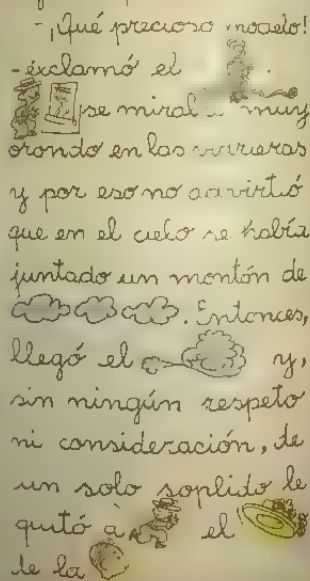 - ¡Qué precioso modelo!
- exclamó el .
se miraba muy
orondo en las vidrieras
y por eso no advirtió
que en el cielo se había
juntado un montón de
. Entonces,
llegó el y,
sin ningún respeto
ni consideración, de
un solo soplido le
quitó a el
de la